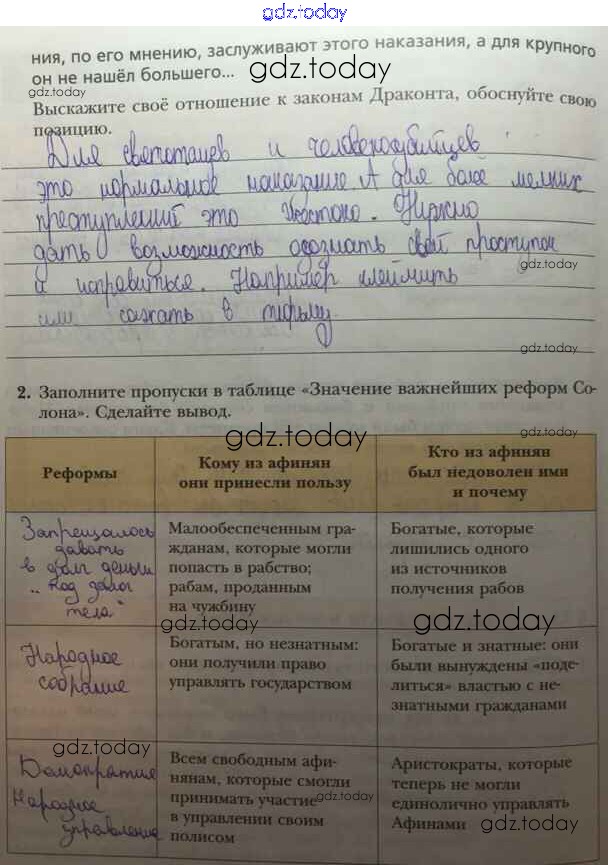 gdz.today
ния, по его мнению, заслуживают этого наказания, а для крупного
он не нашёл большего... gdz.today
gdz.today
Выскажите своё отношение к законам Драконта, обоснуйте свою
позицию.
Для светотацев и человекоубийцев
это нормальное наказание. А для более мелких
преступлений это жестоко. Нужно
дать возможность осознать свой проступок
gdz.today
и исправиться. Например клеймить
или сажать в тюрьму
gdz.today
2. Заполните пропуски в таблице «Значение важнейших реформ Со-
лона». Сделайте вывод.
gdz.today
Реформы
Кому из афинян
они принесли пользу
Кто из афинян
был недоволен ими
и почему
Запрещалось
давать
в долг деньги
"под залог
тела"
Малообеспеченным гра-
жданам, которые могли
попасть в рабство;
рабам, проданным
на чужбину
Богатые, которые
лишились одного
из источников
получения рабов
gdz.today
gdz.today
Народное
собрание
Богатым, но незнатным:
они получили право
управлять государством
Богатые и знатные: они
были вынуждены «поде-
литься» властью с не-
знатными гражданами
gdz.today
Демократия
Народное
управление
Всем свободным афи-
нянам, которые смогли
принимать участие
в управлении своим
полисом
gdz.today
Аристократы, которые
теперь не могли
единолично управлять
Афинами
gdz.today